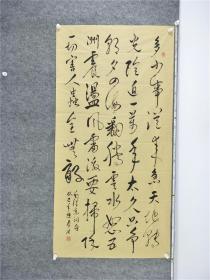 多少事從來急天地轉
光陰迫一万年太久只争
朝夕四海翻騰雲水怒五
洲震盪風雷激要掃除
一切害人蟲全無敵